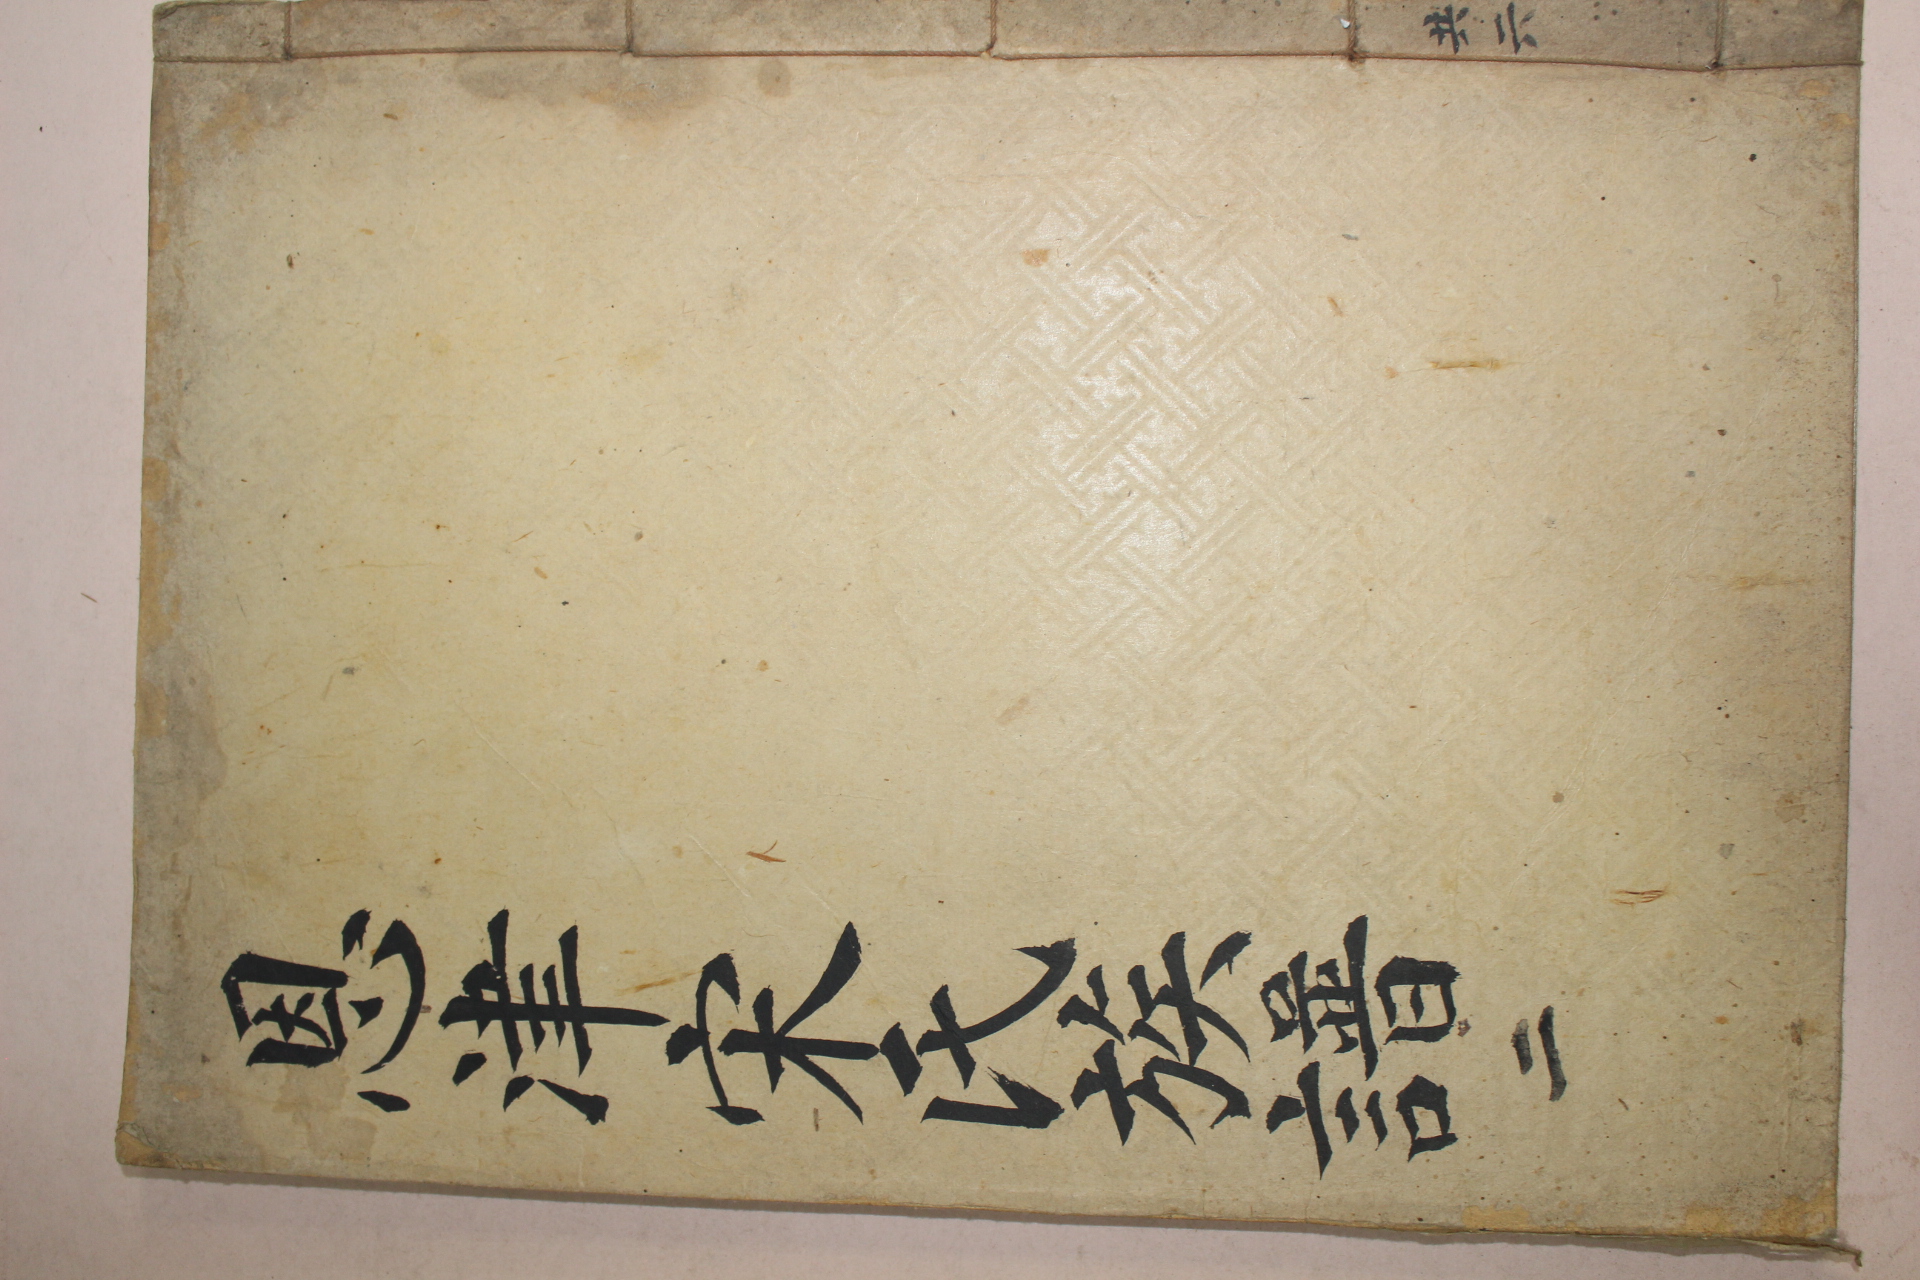 恩津宋氏族譜 二
共六